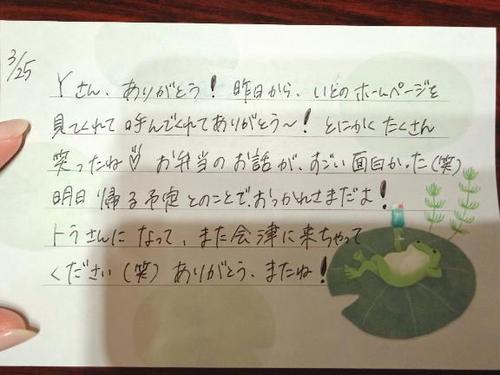 3/25
Yさん、ありがとう！昨日から、いとのホームページを
見てくれて呼んでくれてありがとう〜！とにかくたくさん
笑ったね♡お弁当のお話が、すごい面白かった(笑)
明日帰る予定とのことで、おつかれさまだよ！
トラさんになって、また会津に来ちゃって
ください(笑)ありがとう、またね！